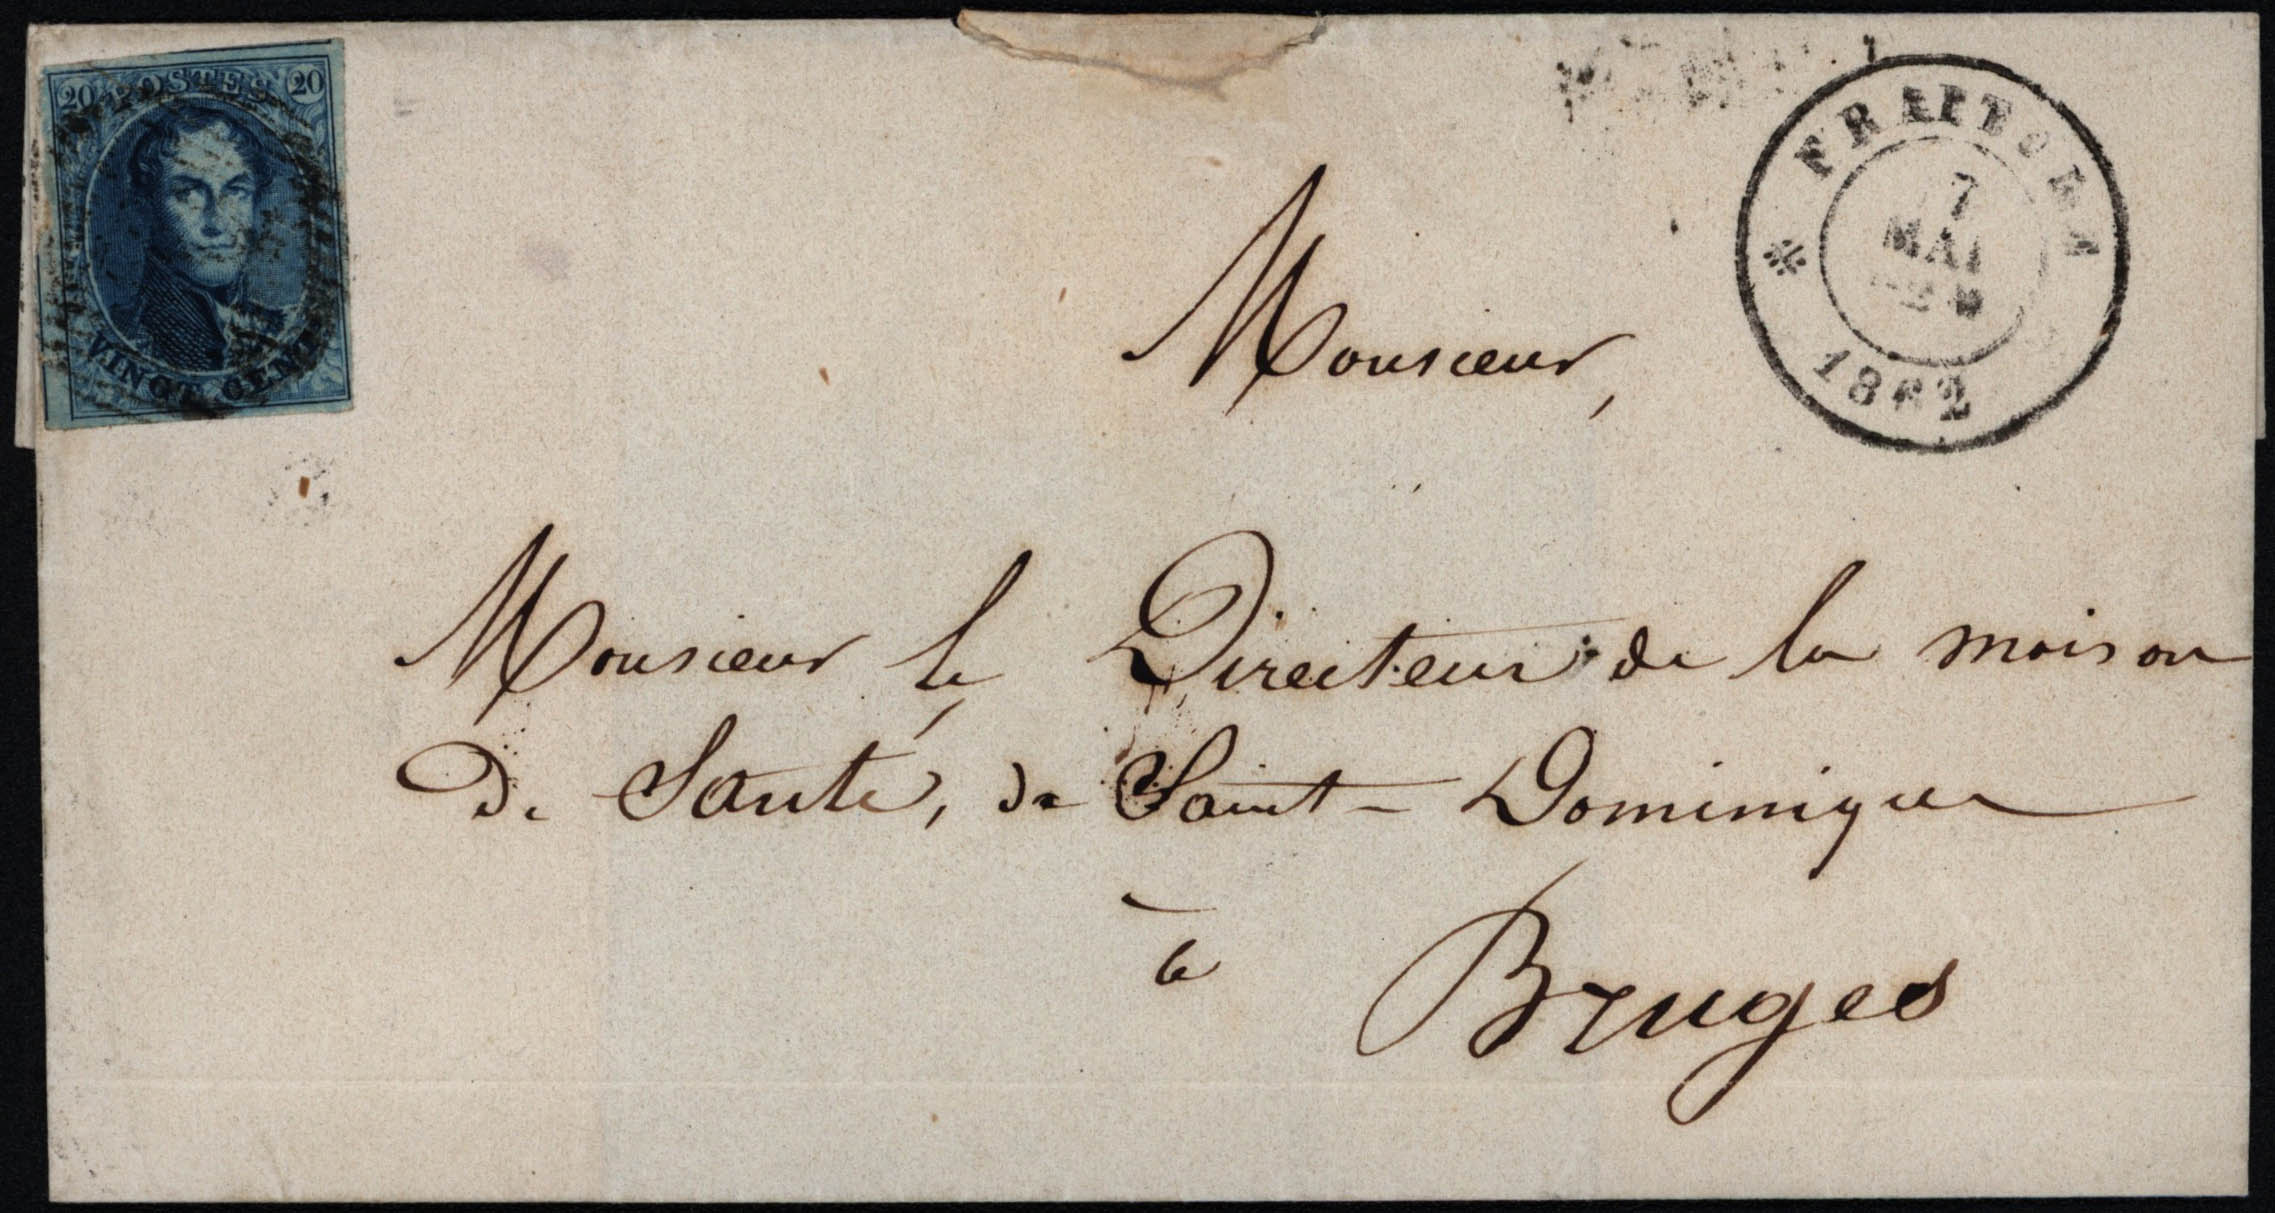 20 POSTES 20
VINGT CENT
7
MAI
1862
Monsieur,
Monsieur le Directeur de la maison
De Santé, de Saint-Dominique
à
Bruges